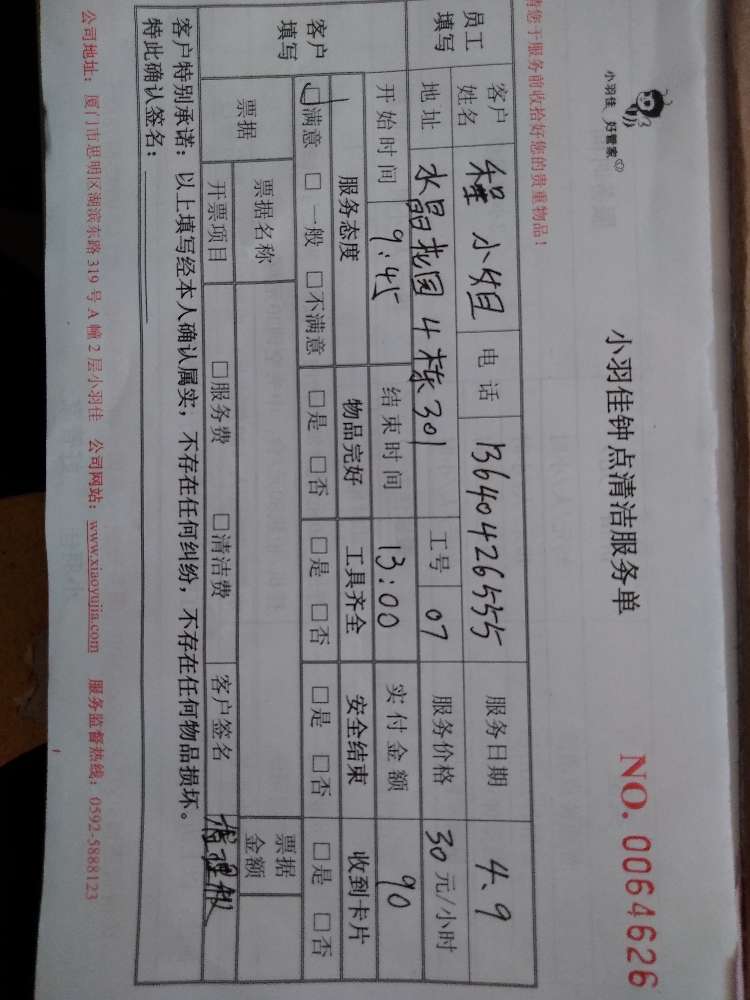 小羽佳 好管家
小羽佳钟点清洁服务单
NO. 0064626
请您于服务前收拾好您的贵重物品！
员工填写 客户姓名 程小姐 电话 13640426555 服务日期 4.9
地址 水晶花园4栋301 工号 07 服务价格 30元/小时
开始时间 9:45 结束时间 13:00 实付金额 90
客户填写 服务态度 物品完好 工具齐全 安全结束 收到卡片
□满意 □一般 □不满意 □是 □否 □是 □否 □是 □否 □是 □否
票据 票据名称 票据金额
开票项目 □服务费 □清洁费 客户签名
客户特别承诺：以上填写经本人确认属实；不存在任何纠纷，不存在任何物品损坏。
特此确认签名：
公司地址：厦门市思明区湖滨东路319号A幢2层小羽佳 公司网站：www.xiaoyujia.com 服务监督热线：0592-5888123